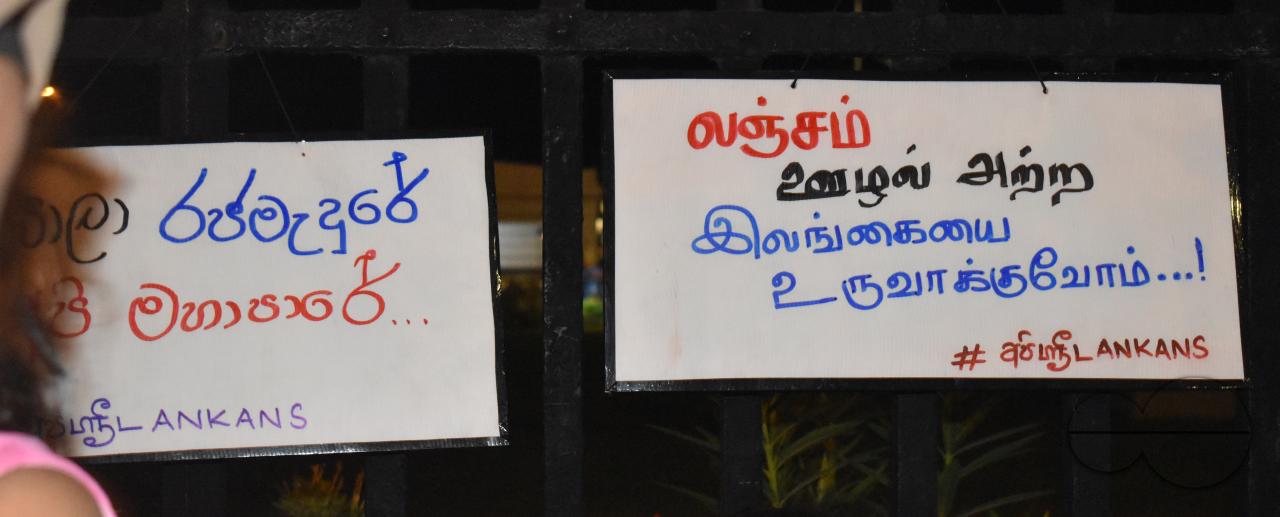 රජමැදුරේ
මහාපාරේ...
LANKANS
லஞ்சம்
ஊழல் அற்ற
இலங்கையை
உருவாக்குவோம்...!
# අපිஸ்ரீLANKANS